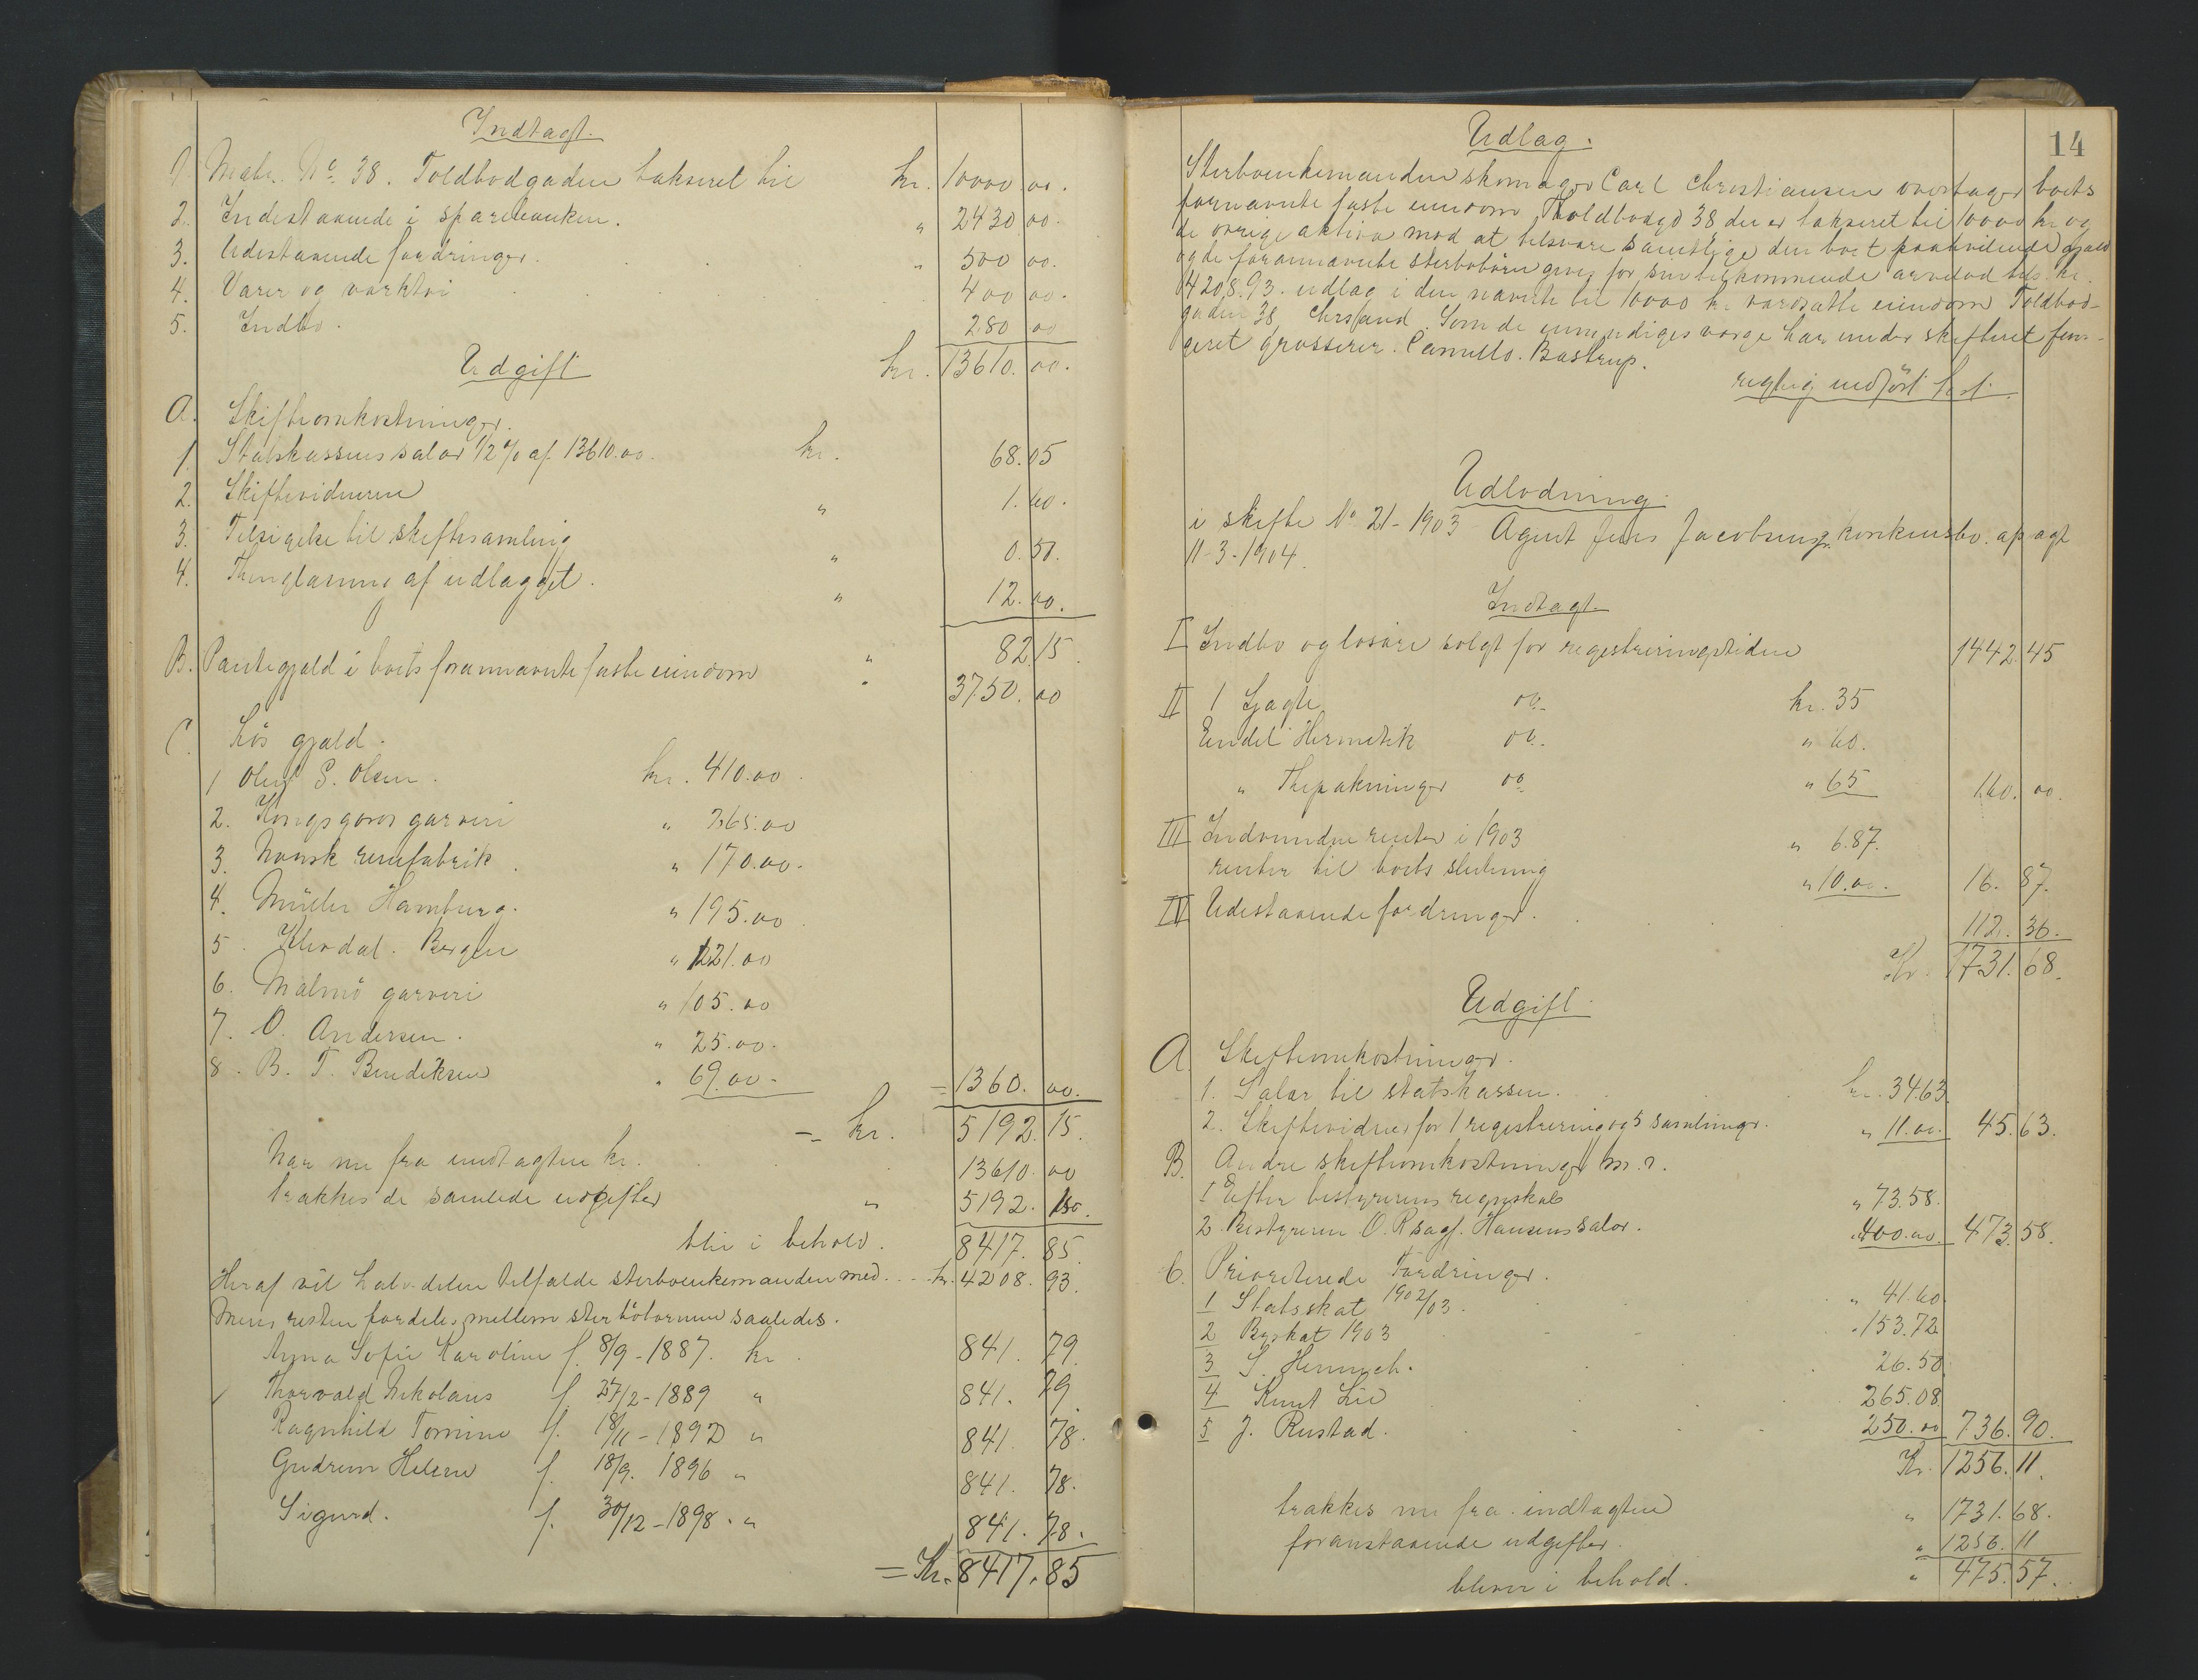 Indtægt.
1. Matr. No. 38. Toldbodgaden takseret til kr. 10000.00.
2. Indestaaende i sparebanken. " 2430.00.
3. Udestaaende fordringer. " 500 00.
4. Varer og værktøi 400 00.
5. Indbo. 280 00
kr. 13610. 00.
Udgift
A. Skifteomkostninger.
1. Statskassens salær 1/2 % af 13610.00. kr. 68.05
2. Skiftevidnerne " 1.60.
3. Tilsigelse til skiftesamling " 0.50.
4. Thinglæsning af udlægget. " 12.00.
" 82.15.
B. Pantegjæld i boets forannævnte faste eiendom " 3750.00
C. Løs gjæld.
1 Oluf S. Olsen. kr. 410.00.
2. Kongsgaard garveri " 265.00
3. Norsk remfabrik. " 170.00.
4. Müller Hamburg. " 195.00
5. Klivdal. Bergen " 121.00
6. Malmö garveri " 105.00
7. O. Andersen. " 25.00.
8. B. T. Bendiksen " 69.00. = 1360. 00.
= kr. 5192. 15.
Naar nu fra indtægten kr. 13610. 00
trækkes de samlede udgifter " 5192. 15.
blir i behold. 8417. 85.
Heraf vil halvdelen tilfalde sterboenkemanden med. kr. 4208. 93.
Mens resten fordeles mellem sterbobørnene saaledes.
Anna Sofie Karoline f. 8/9-1887. kr. 841. 79.
Thorvald Nikolaus f. 27/2-1889 " 841. 79.
Ragnhild Tomine f. 18/11-1892 " 841. 78.
Gudrun Helene f. 18/9. 1896 " 841. 78.
Sigurd. f. 30/12-1898. " 841. 78.
= Kr. 8417.85
14
Udlæg.
Sterboenkemanden skomager Carl Christiansen overtager boets
fornævnte faste eiendom Tholdbodgd 38 der er takseret til 10000 kr og
de øvrige aktiva mod at tilsvare samtlige den boet paahvilende gjæld
og de forannævnte sterbobørn gives for sin tilkommende arvelod tils. kr.
4208.93. udlæg i den nævnte til 10000 kr. værdsatte eiendom Toldbod-
gaden 38 Chrsand. Som de umyndiges værge har under skiftet fun-
geret grosserer. Camillo. Bastrup.
rigtig indført
Udlodning
i skifte No 21-1903 Agent Jens Jacobsens konkursbo. af agt
11-3-1904.
Indtægt.
I Indbo og løsøre solgt før registreringstiden 1442.45
II 1 Sjægte do. kr. 35
Endel Hermetik do. " 60.
" Thepakninger do " 65 160. 00.
III Indvundne renter i 1903 " 6.87.
renter til boets slutning " 10.00. 16. 87.
IV Udestaaende fordringer. 112. 36.
Kr. 1731. 68.
Udgift.
A. Skifteomkostninger.
1. Salær til statskassen. kr. 34.63.
2. Skiftevidner for 1 registrering og 5 samlinger. " 11.00. 45.63.
B. Andre skifteomkostninger m.v.
1 Efter bestyrerens regnskab " 73.58.
2. Bestyreren O. R sagf. Hansens salær. " 400.00. 473.58.
C. Prioriterede Fordringer.
1 Statsskat 1902/03. " 41.60.
2 Byskat 1903 " 153.72
3 S. 26.50
4 Knut Lie 265.08
5 J. Rustad. 250.00 736.90.
Kr. 1256.11.
trækkes nu fra indtægten " 1731.68.
foranstaaende udgifter. " 1256.11
bliver i behold. " 475.57.